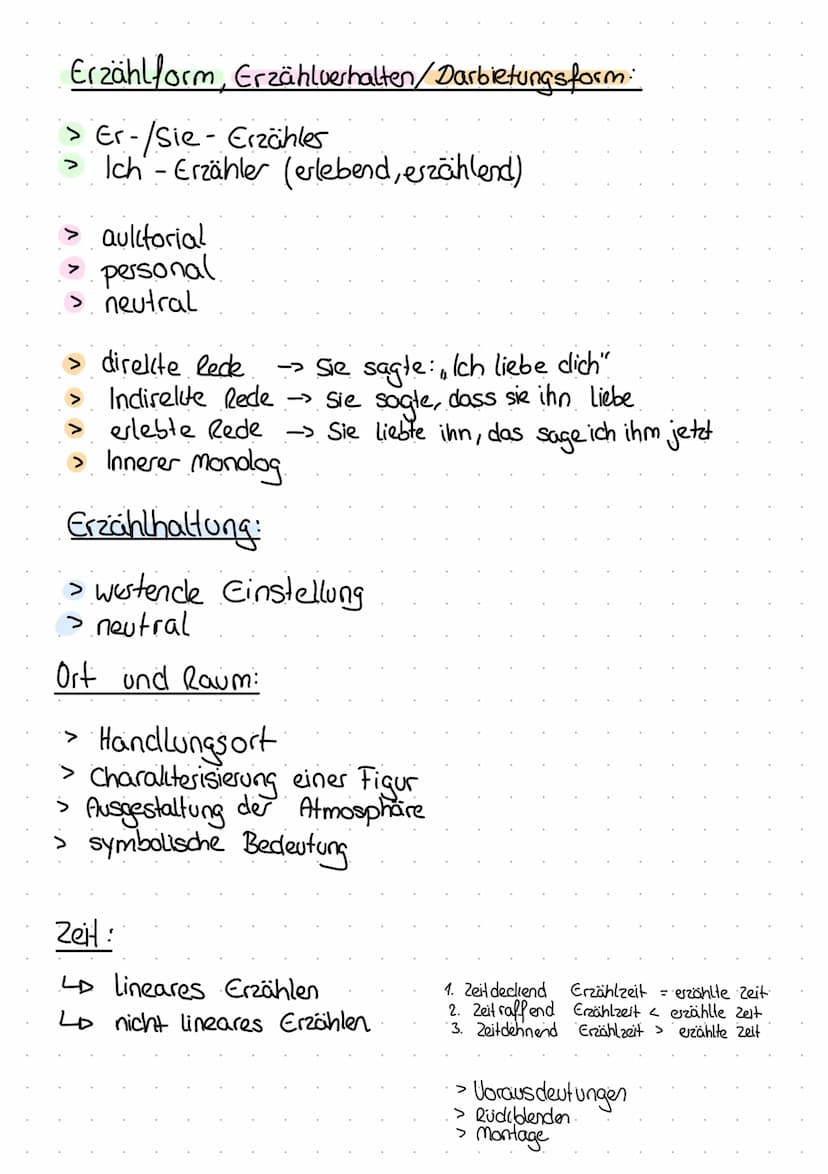 Erzählform, Erzählverhalten/Darbietungsform:
> Er-/Sie - Erzähler
> Ich - Erzähler (erlebend, erzählend)
> auktorial
> personal
> neutral
> direkte Rede -> Sie sagte: „Ich liebe dich“
> Indirekte Rede -> Sie sagte, dass sie ihn liebe
> erlebte Rede -> Sie liebte ihn, das sage ich ihm jetzt
> Innerer Monolog
Erzählhaltung:
> wertende Einstellung
> neutral
Ort und Raum:
> Handlungsort
> Charakterisierung einer Figur
> Ausgestaltung der Atmosphäre
> symbolische Bedeutung
Zeit:
↳ lineares Erzählen
↳ nicht lineares Erzählen
1. Zeitdeckend Erzählzeit = erzählte Zeit
2. Zeitraffend Erzählzeit < erzählte Zeit
3. Zeitdehnend Erzählzeit > erzählte Zeit
> Vorausdeutungen
> Rückblenden
> Montage